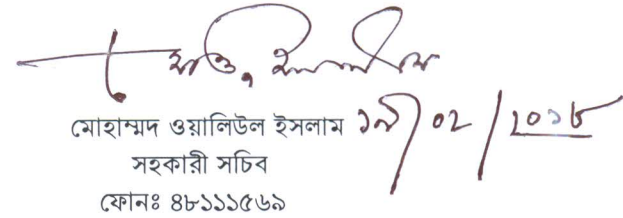 মোহাম্মদ ওয়ালিউল ইসলাম ১৯/০২/২০১৮
সহকারী সচিব
ফোনঃ ৪৮১১১৫৬৯